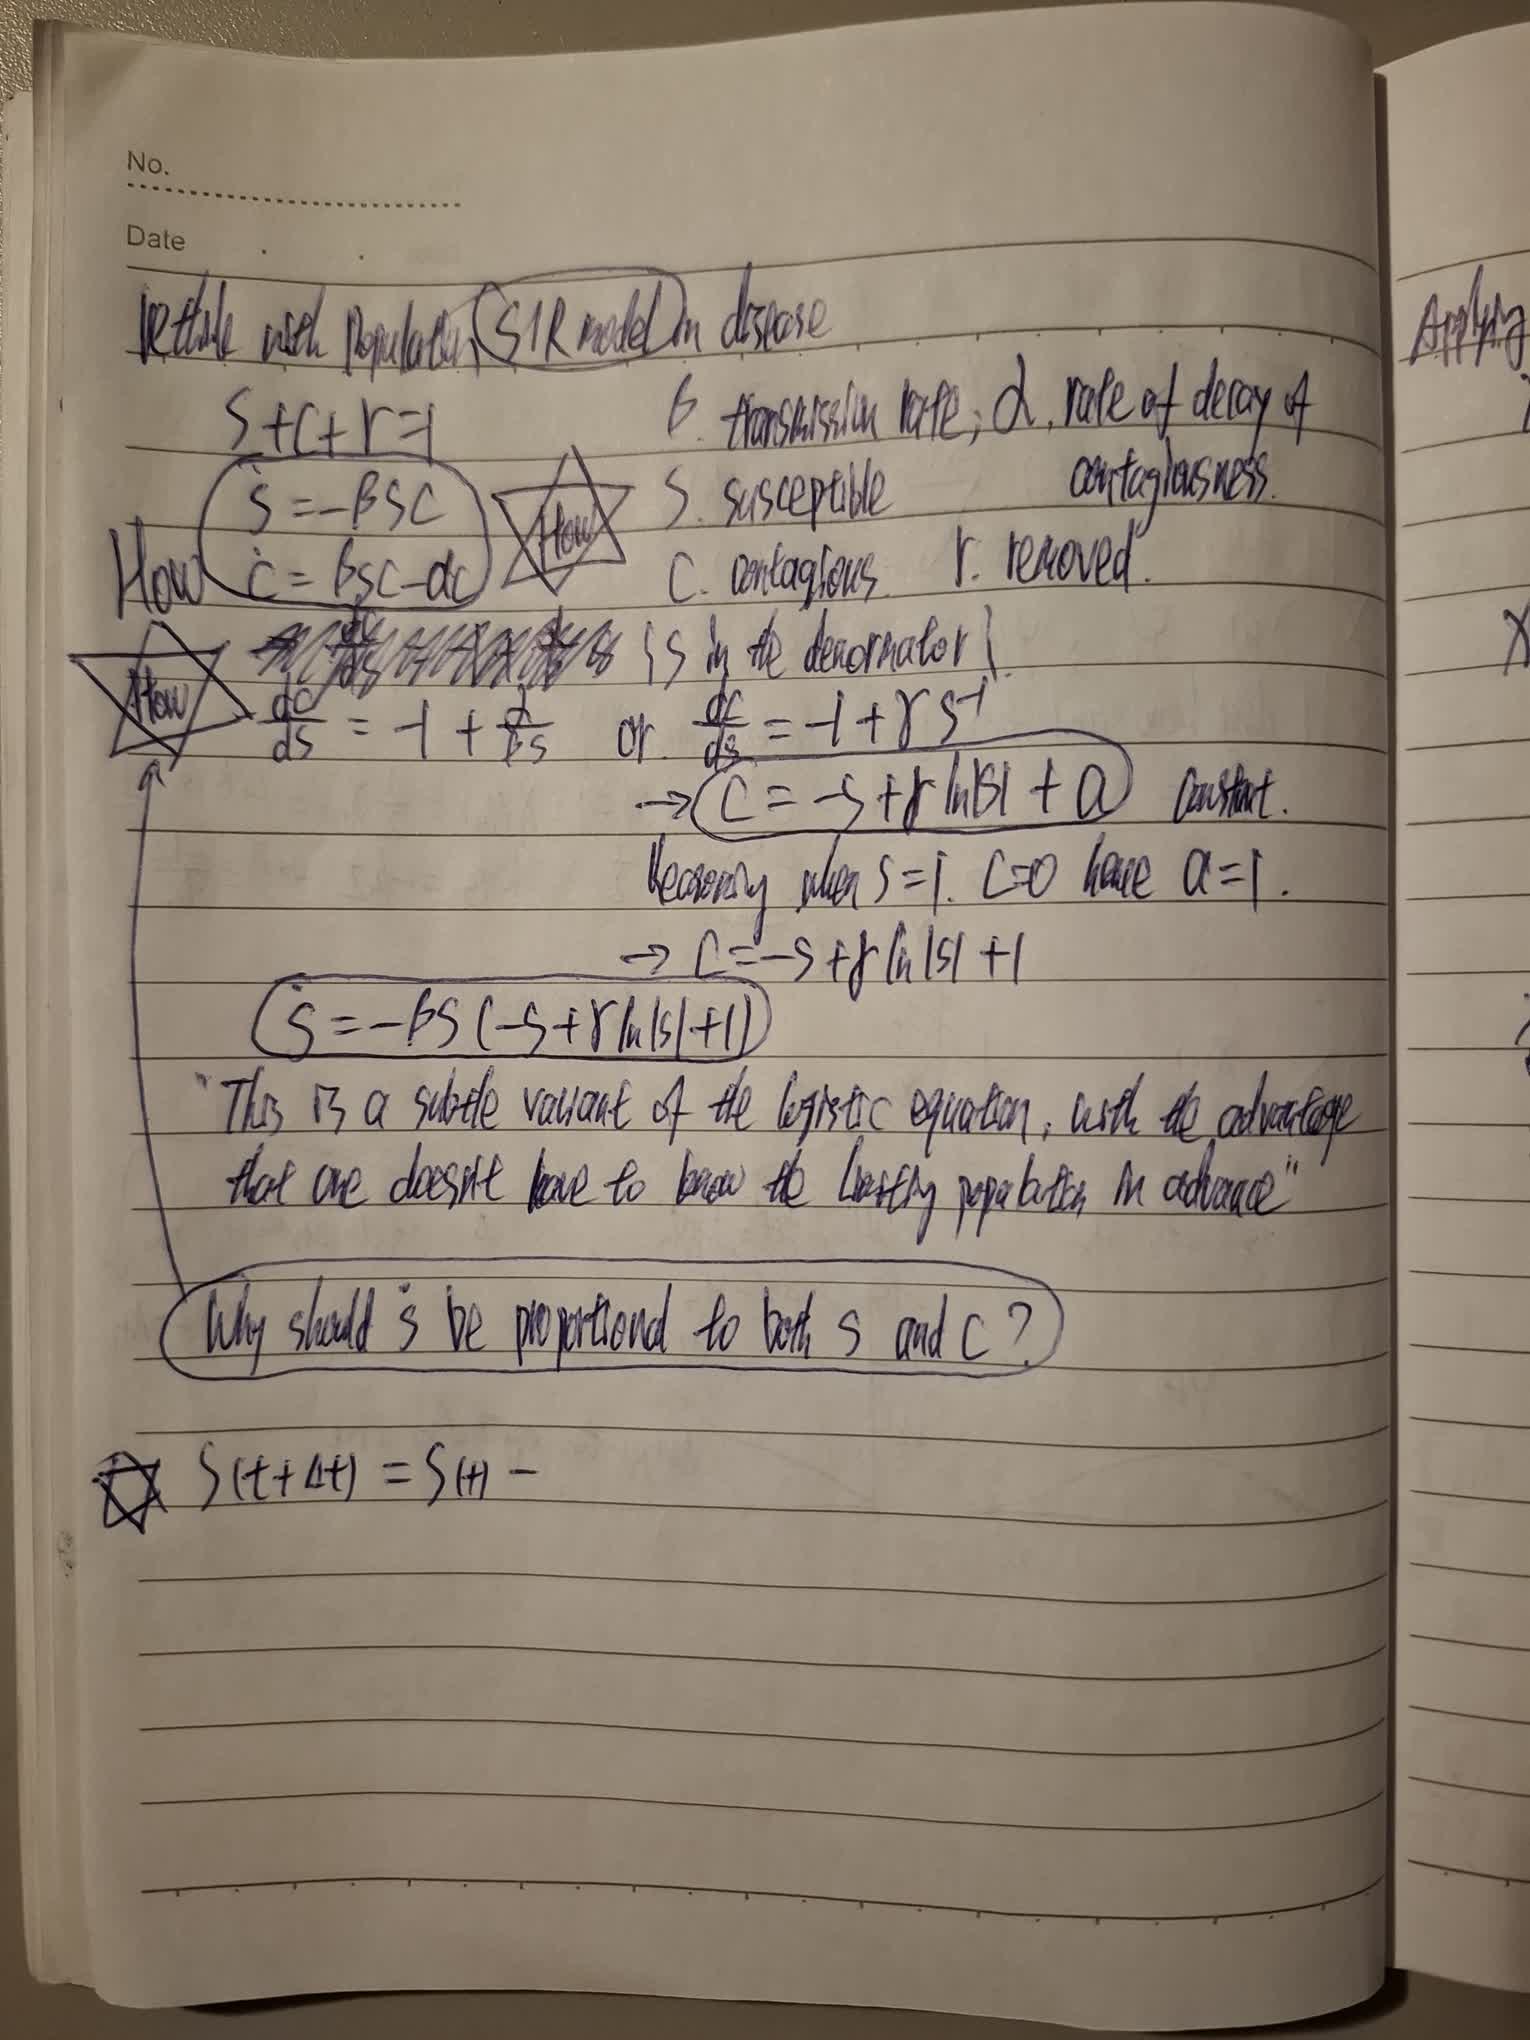 No.
Date
Rethink with Population, SIR model in disease
s+c+r=1
β. transmission rate; α. rate of decay of
contagiousness.
ṡ=-βsc
How
s. susceptible
How ċ=βsc-αc
c. contagious. r. removed.
{s in the denormator}
How
dc/ds = -1 + α/βs or. dc/ds = -1+γs⁻¹
→ c = -s+γ ln|s| + a constant.
when s=1. c=0 have a=1.
→ c=-s+γ ln|s| +1
ṡ=-βs(-s+γ ln|s|+1)
"This is a subtle variant of the logistic equation, with the advantage
that one doesn't have to know the limiting population in advance"
Why should ṡ be proportional to both s and c?
S(t+Δt) = S(t) -
Applying